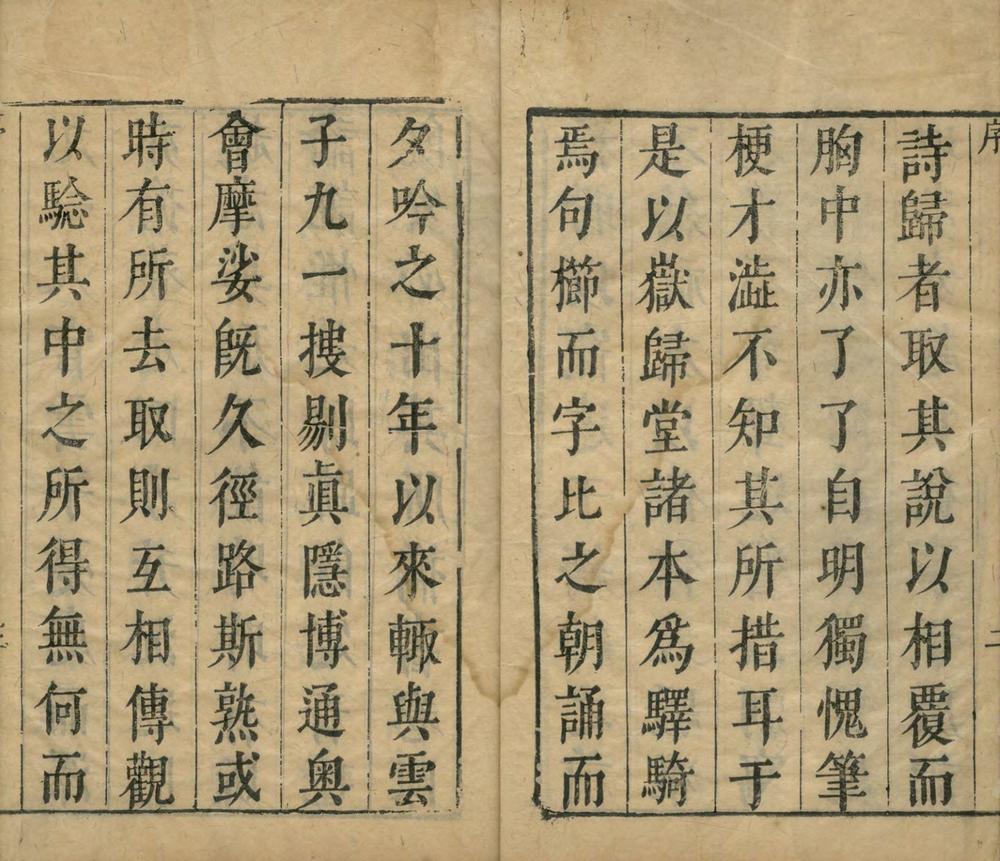 序
詩歸者取其說以相覆而
胸中亦了了自明獨愧筆
梗才澁不知其所措耳于
是以嶽歸堂諸本爲驛騎
焉句櫛而字比之朝誦而
夕吟之十年以來輙與雲
子九一搜剔眞隱博通奥
會摩娑旣久徑路斯熟或
時有所去取則互相傳觀
以騐其中之所得無何而